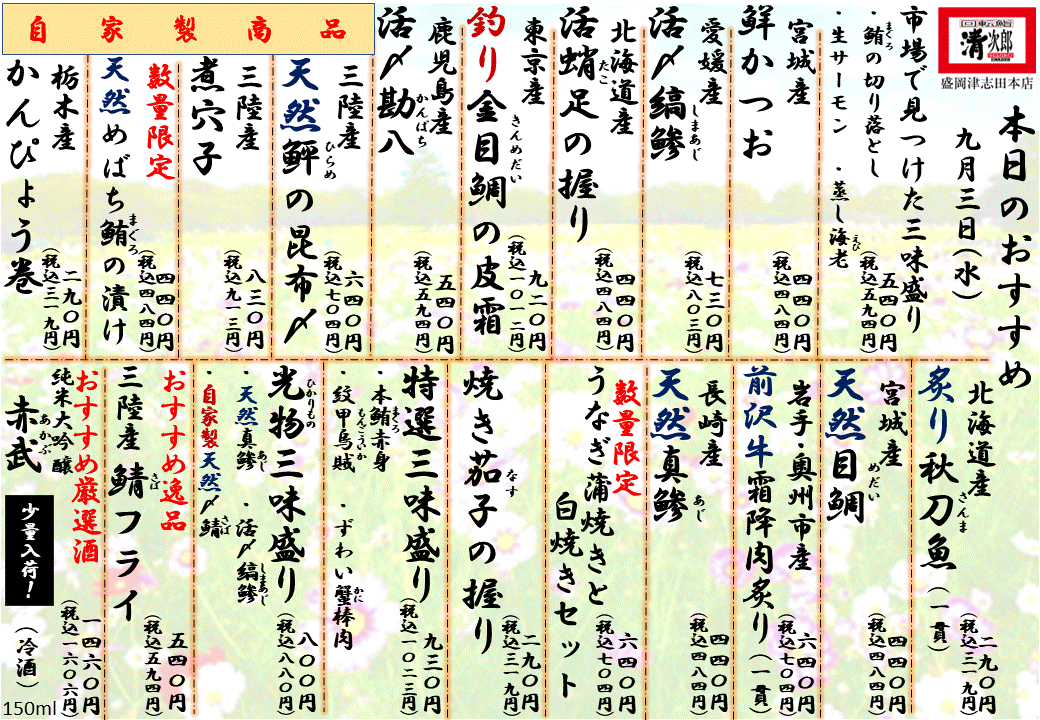 回転鮨
清次郎
盛岡津志田本店
本日のおすすめ
九月三日(水)
市場で見つけた三味盛り
・鮪の切り落とし
まぐろ
・生サーモン ・蒸し海老
えび
五四〇円
(税込五九四円)
宮城産
鮮かつお
四四〇円
(税込四八四円)
愛媛産
活〆縞鯵
しまあじ
七三〇円
(税込八〇三円)
北海道産
活蛸足の握り
たこ
四四〇円
(税込四八四円)
東京産
釣り金目鯛の皮霜
きんめだい
九二〇円
(税込一〇一二円)
鹿児島産
活〆勘八
かんぱち
五四〇円
(税込五九四円)
自家製商品
三陸産
天然鮃の昆布〆
ひらめ
六四〇円
(税込七〇四円)
三陸産
煮穴子
八三〇円
(税込九一三円)
数量限定
天然めばち鮪の漬け
まぐろ
四四〇円
(税込四八四円)
栃木産
かんぴょう巻
二九〇円
(税込三一九円)
北海道産
炙り秋刀魚(一貫)
さんま
二九〇円
(税込三一九円)
宮城産
天然目鯛
めだい
四四〇円
(税込四八四円)
岩手・奥州市産
前沢牛霜降肉炙り(一貫)
六四〇円
(税込七〇四円)
長崎産
天然真鯵
あじ
四四〇円
(税込四八四円)
数量限定
うなぎ蒲焼きと
白焼きセット
六四〇円
(税込七〇四円)
焼き茄子の握り
なす
二九〇円
(税込三一九円)
特選三味盛り
・本鮪赤身 ・ずわい蟹棒肉
まぐろ
かに
・紋甲烏賊
もんこういか
九三〇円
(税込一〇二三円)
光物三味盛り
ひかりもの
・天然真鯵 ・活〆縞鯵
あじ
しまあじ
・自家製天然〆鯖
さば
八〇〇円
(税込八八〇円)
おすすめ逸品
三陸産 鯖フライ
さば
五四〇円
(税込五九四円)
おすすめ厳選酒
純米大吟醸
赤武
あかぶ
少量入荷!
(冷酒)
一四六〇円
(税込一六〇六円)
150ml